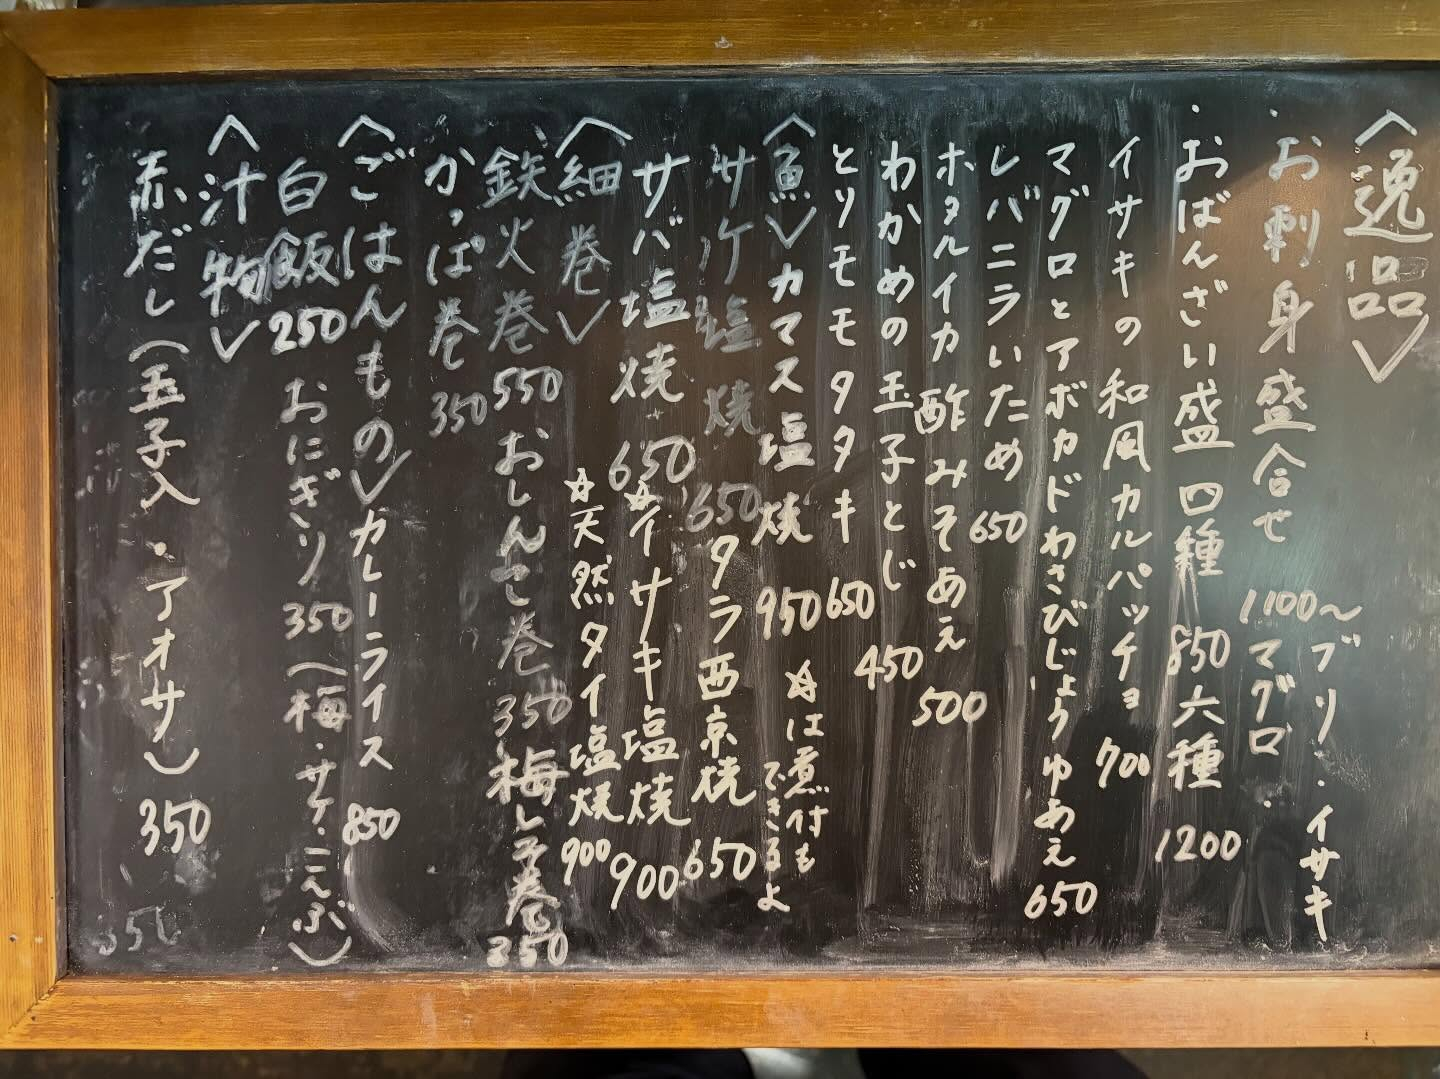 〈逸品〉
・お刺身盛合せ 1100〜 ブリ・イサキ マグロ・
・おばんざい盛 四種 850 六種 1200
イサキの和風カルパッチョ 700
マグロとアボカドわさびじょうゆあえ 650
レバニラいため 650
ホタルイカ酢みそあえ 500
わかめの玉子とじ 450
とりモモタタキ 650
〈魚〉カマス塩焼 950 ☆は煮付もできるよ
サケ塩焼 650 タラ西京焼 650
サバ塩焼 650 ☆イサキ塩焼 900
☆天然タイ塩焼 900
〈細巻〉
鉄火巻 550 おしんこ巻 350 梅しそ巻 350
かっぱ巻 350
〈ごはんもの〉カレーライス 850
白飯 250 おにぎり 350 (梅・サケ・こんぶ)
〈汁物〉
赤だし(玉子入・アオサ) 350
350